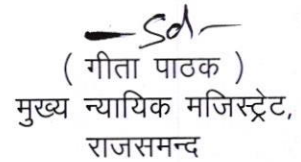 -Sd-
( गीता पाठक )
मुख्य न्यायिक मजिस्ट्रेट,
राजसमन्द